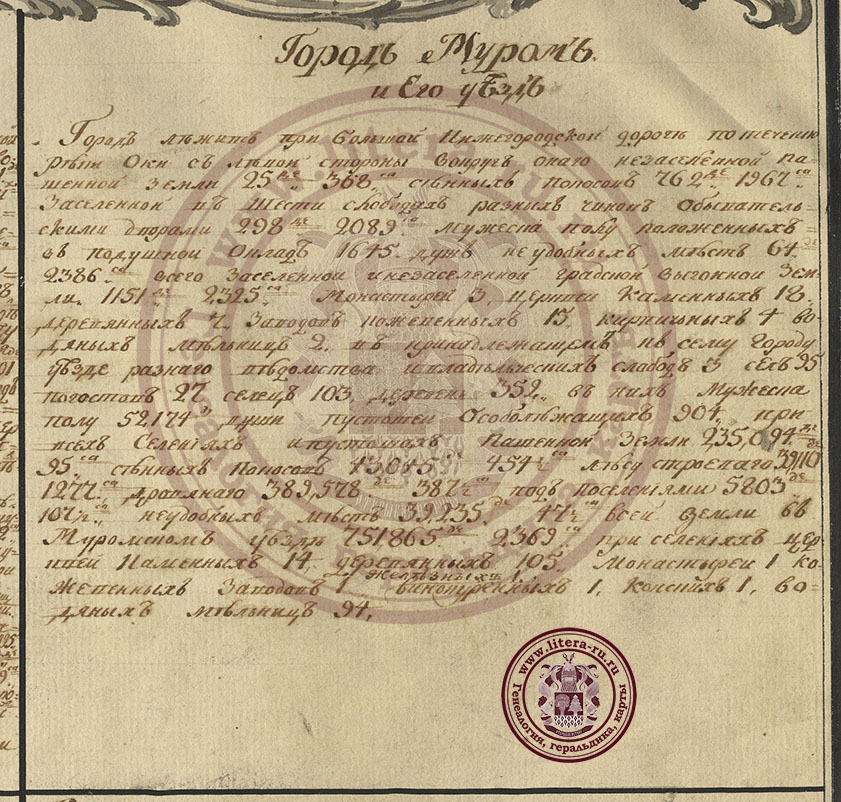 Городъ Муромъ.
и Его уѣздъ
Городъ лѣжитъ при большой Нижегородской дорогѣ по теченію
рѣки Оки съ лѣвой стороны вокругъ онаго незаселенной па-
шенной земли 25 де. 368 са. сѣнныхъ покосовъ 762 де 1967 са.
Заселенной въ шести слободахъ разныхъ чиновъ обыватель-
скими дворами 298 де 2089 са. мужеска полу положенныхъ
въ подушной окладъ 1645 душъ неудобныхъ мѣстъ 64 де
2386 са всего заселенной и незаселенной градской выгонной зем-
ли 1151 де 2325 са Монастырей 3, церквей каменныхъ 18.
деревянныхъ 4. Заводовъ кожевенныхъ 15. кирпичныхъ 4 во-
дяныхъ мѣльницъ 2. въ принадлежащемъ къ сему городу
уѣзде разнаго вѣдомства и владѣльческихъ слабодъ 3 селъ 95
погостовъ 27 селецъ 103, деревень 352, въ нихъ Мужеска
полу 52,174 души пустошей Особолѣжащихъ 904, при
всехъ Селеніяхъ и пустошахъ Пашенной Земли 235,094 де
95 са сѣнныхъ Покосовъ 45045 де 454½ са лѣсу строеваго 39110 де
1277 са дровянаго 389,578 де 387½ са подъ поселеніями 5803 де
107½ са неудобныхъ мѣстъ 39,235 де 47½ са всей Земли въ
Муромскомъ уѣздѣ 751,865 де 2,369 са при селеніяхъ цер-
квей Каменныхъ 14, деревянныхъ 105. Монастырей 1 ко-
желѣзныхъ 1
жевенныхъ Заводовъ 1 винокуренныхъ 1, во-
дяныхъ мѣльницъ 94,
www.litera-ru.ru
Генеалогия, геральдика, карты